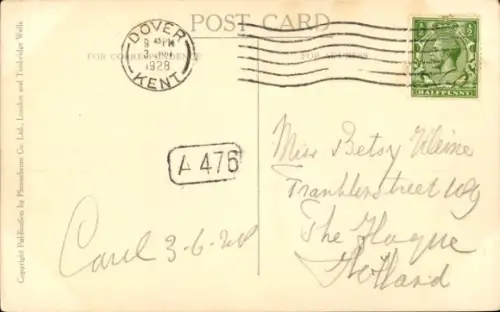 POST CARD
FOR CORRESPONDENCE
FOR ADDRESS
DOVER
9 45 PM
3 JUN
1928
KENT
HALFPENNY
A 476
Miss Betsy Kleine
The Hague
Holland
Carel 3-6-28
Copyright Publication by Photochrom Co. Ltd., London and Tunbridge Wells